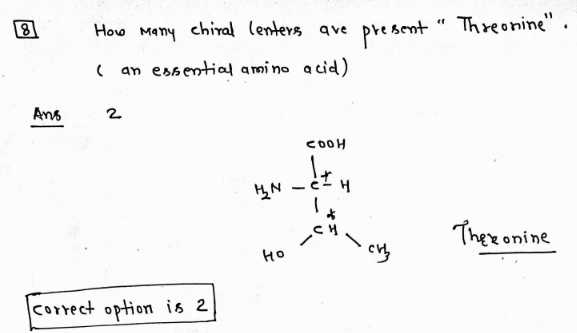 8 How Many chiral Centers are present " Threonine" .
( an essential amino acid)
Ans 2
COOH
H2N - C* - H
*
CH
HO CH3
Threonine
Correct option is 2